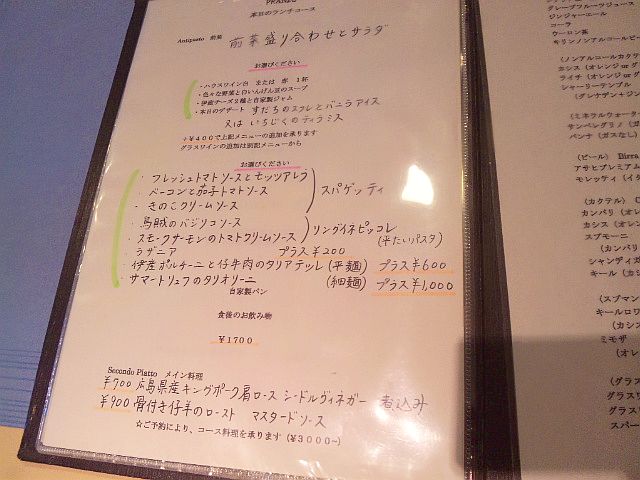 PRANZO
本日のランチコース
Antipasto 前菜 前菜盛り合わせとサラダ
お選びください
・ハウスワイン白 または 赤 1杯
・色々な野菜と白いんげん豆のスープ
・伊産チーズ2種と自家製ジャム
・本日のデザート すだちのスフレとバニラアイス
又は いちじくのティラミス
+¥400で上記メニューの追加を承ります
グラスワインの追加は別記メニューから
お選びください
・フレッシュトマトソースとモッツアレラ
・ベーコンと茄子トマトソース
スパゲッティ
・きのこクリームソース
・烏賊のバジリコソース
リングイネピッコレ
・スモークサーモンのトマトクリームソース
(平たいパスタ)
・ラザニア プラス¥200
・伊産ポルチーニと仔牛肉のタリアテッレ(平麺) プラス¥600
・サマートリュフのタリオリーニ (細麺) プラス¥1,000
自家製パン
食後のお飲み物
¥1700
Secondo Piatto メイン料理
¥700 広島県産キングポーク肩ロース シードルヴィネガー 煮込み
¥900 骨付き仔羊のロースト マスタードソース
☆ご予約により、コース料理を承ります(¥3000~)
グレープフルーツジュース
ジンジャーエール
コーラ
ウーロン茶
キリンノンアルコールビー
(ノンアルコールカクテ
カシス(オレンジ or グ
ライチ(オレンジ or グ
シャーリーテンプル
(グレナデン+ジン
(ミネラルウォーター
サンペングリノ(ガ
パンナ(ガスなし)
(ビール) Birra
アサヒプレミアム
モレッティ(イタ
(カクテル) C
カンパリ(オレ
カシス(オレン
スプモーニ
(カンパリ
シャンディガ
キール(カシ
(スプマン
キールロワ
(カシス
ミモザ
(オレ
(グラス
グラスワ
グラス
スパー